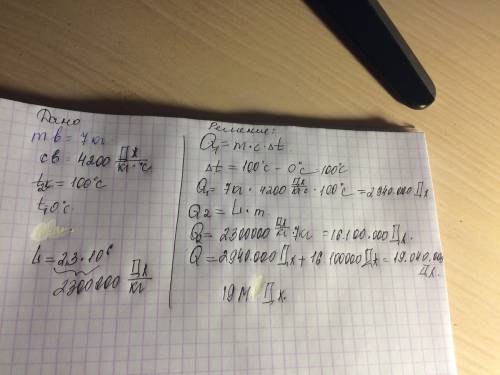 Дано
mв = 7кг.
cв = 4200 Дж/кг·°C
t2 = 100°C
t1 0°C.
L = 2,3·10⁶
2300000 Дж/кг
Решение:
Q1 = m·c·Δt
Δt = 100°C - 0°C = 100°C
Q1 = 7кг · 4200 Дж/кг·с · 100°C = 2940.000 Дж
Q2 = L·m
Q2 = 2300000 Дж/кг·7кг = 16.100.000 Дж.
Q = 2940.000 Дж + 16 100000 Дж = 19.040.000 Дж.
19М Дж.